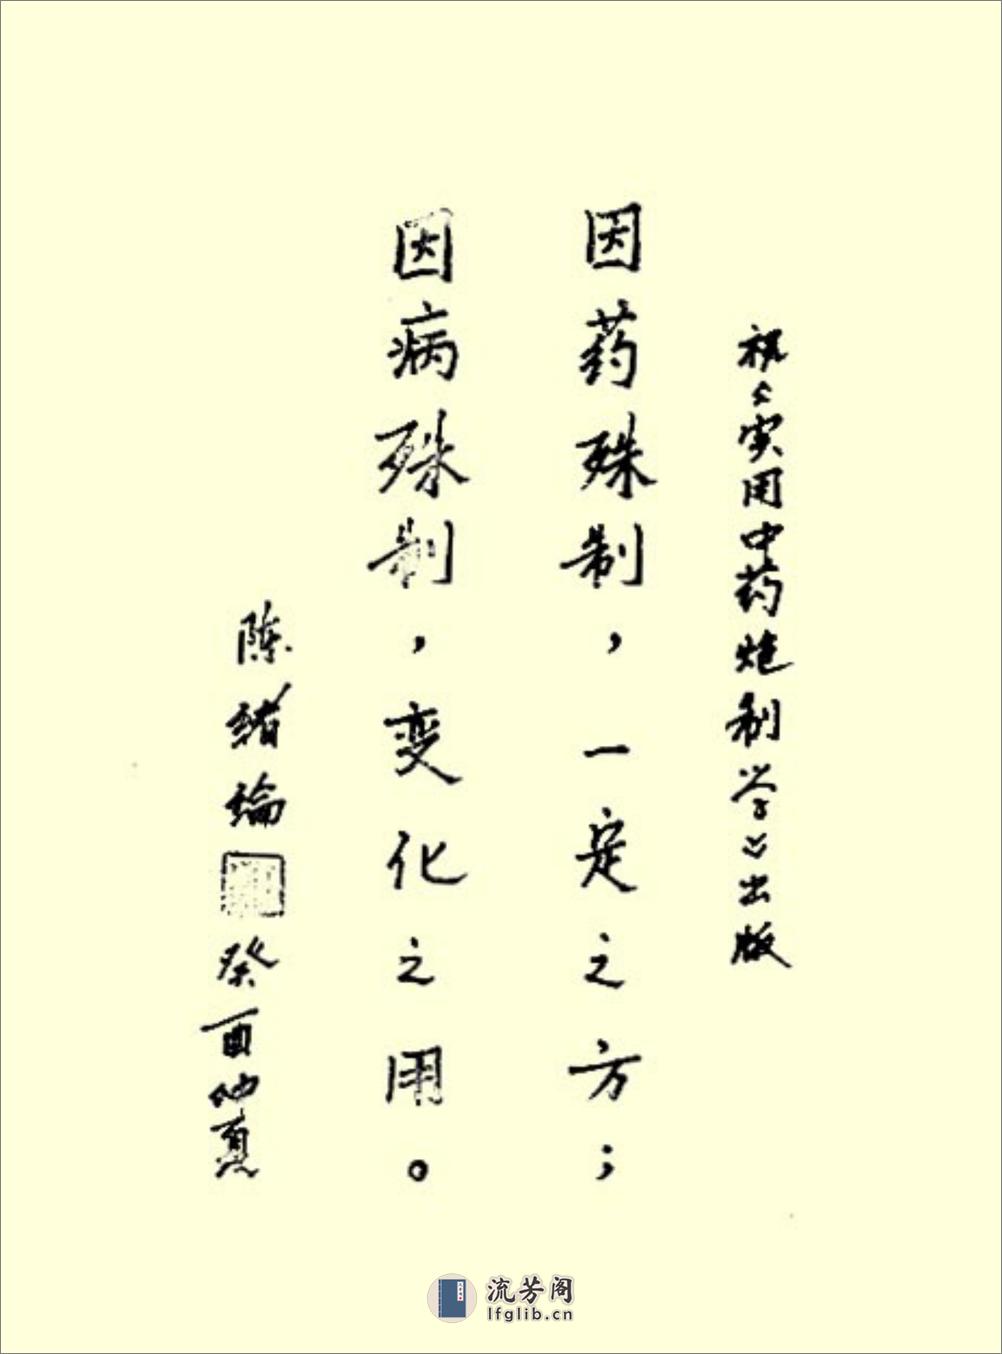 祝《实用中药炮制学》出版
因药殊制，一定之方；
因病殊制，变化之用。
陈绪纶
癸酉仲夏
流芳阁
lfglib.cn